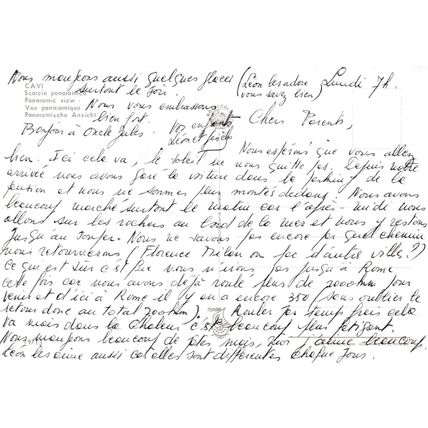 Lundi 7h.
Chers Parents,
Nous espérons que vous allez
bien. Ici cela va, le soleil ne nous quitte pas. Depuis notre
arrivée nous avons garé la voiture dans le parking de la
pension et nous ne sommes plus montés dedans. Nous avons
beaucoup marché surtout le matin car l'après-midi nous
allons sur les rochers au bord de la mer et nous y restons
jusqu'au souper. Nous ne savons pas encore par quel chemin
nous retournerons (Florence Milan ou par d'autres villes??)
Ce qui est sur c'est que nous n'irons pas jusqu'à Rome
cette fois car nous avons déjà roulé plus de pour
venir et d'ici à Rome il y en a encore 350 (sans oublier le
retour donc au total 700km). Rouler par temps frais cela
va mais dans la chaleur c'est beaucoup plus fatigant.
Nous mangeons beaucoup de pâtes mais, moi j'aime beaucoup.
Léon les aime aussi car elles sont différentes chaque jour.
Nous mangeons aussi quelques glaces (Léon les adore
surtout le soir. vous savez bien)
Nous vous embrassons
bien fort.
Bonjour à Oncle Jules. Vos enfants
Léon et
CAVI
Scorcio panoramico
Panoramic view
Vue panoramique
Panoramische Ansicht